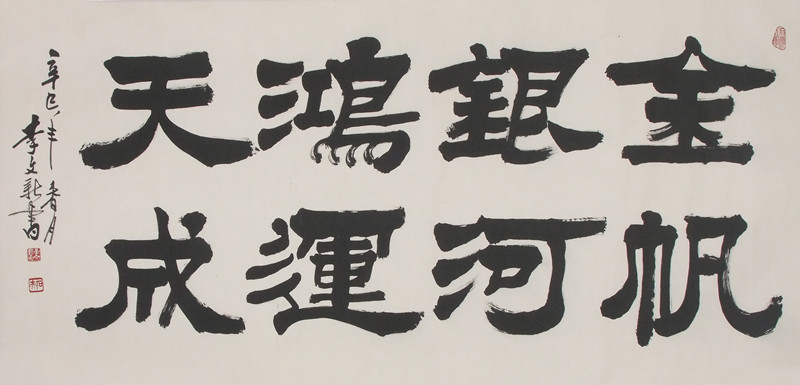 金帆
銀河
鴻運
天成
辛巳年春月
李文新書